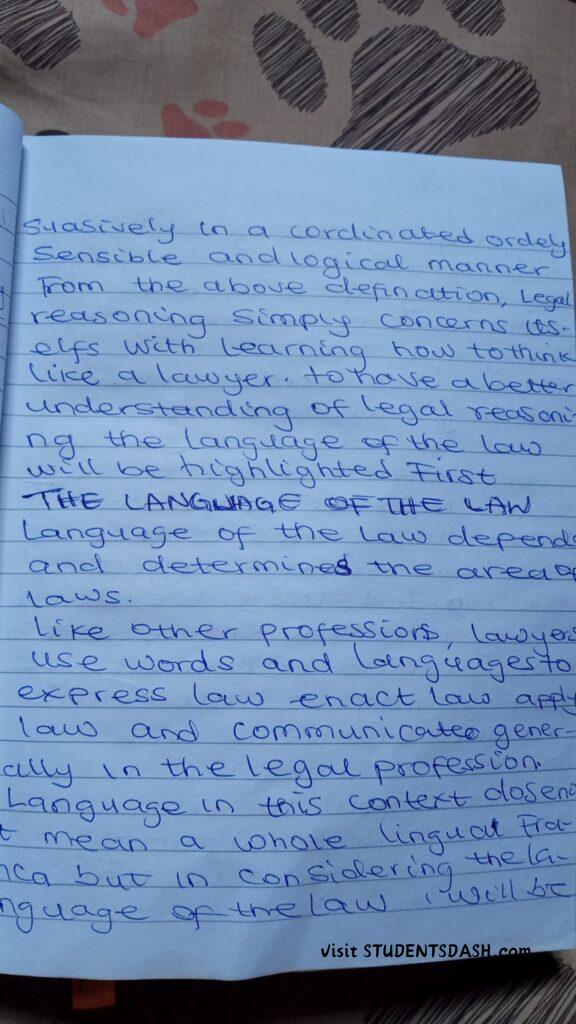 suasively in a cordinated ordely
sensible and logical manner
From the above defination, Legal
reasoning simply concerns its-
elfs with Learning how to think
like a lawyer. to have a better
understanding of legal reasoni-
ng the language of the law
will be highlighted First
THE LANGUAGE OF THE LAW
Language of the law depends
and determines the area of
Laws.
Like other professions, lawyers
use words and languages to
express law enact law apply
law and communicate gener-
ally in the legal profession.
Language in this context dosen
t mean a whole lingual Fra-
nca but in considering the la-
nguage of the law i will be
visit STUDENTSDASH.com